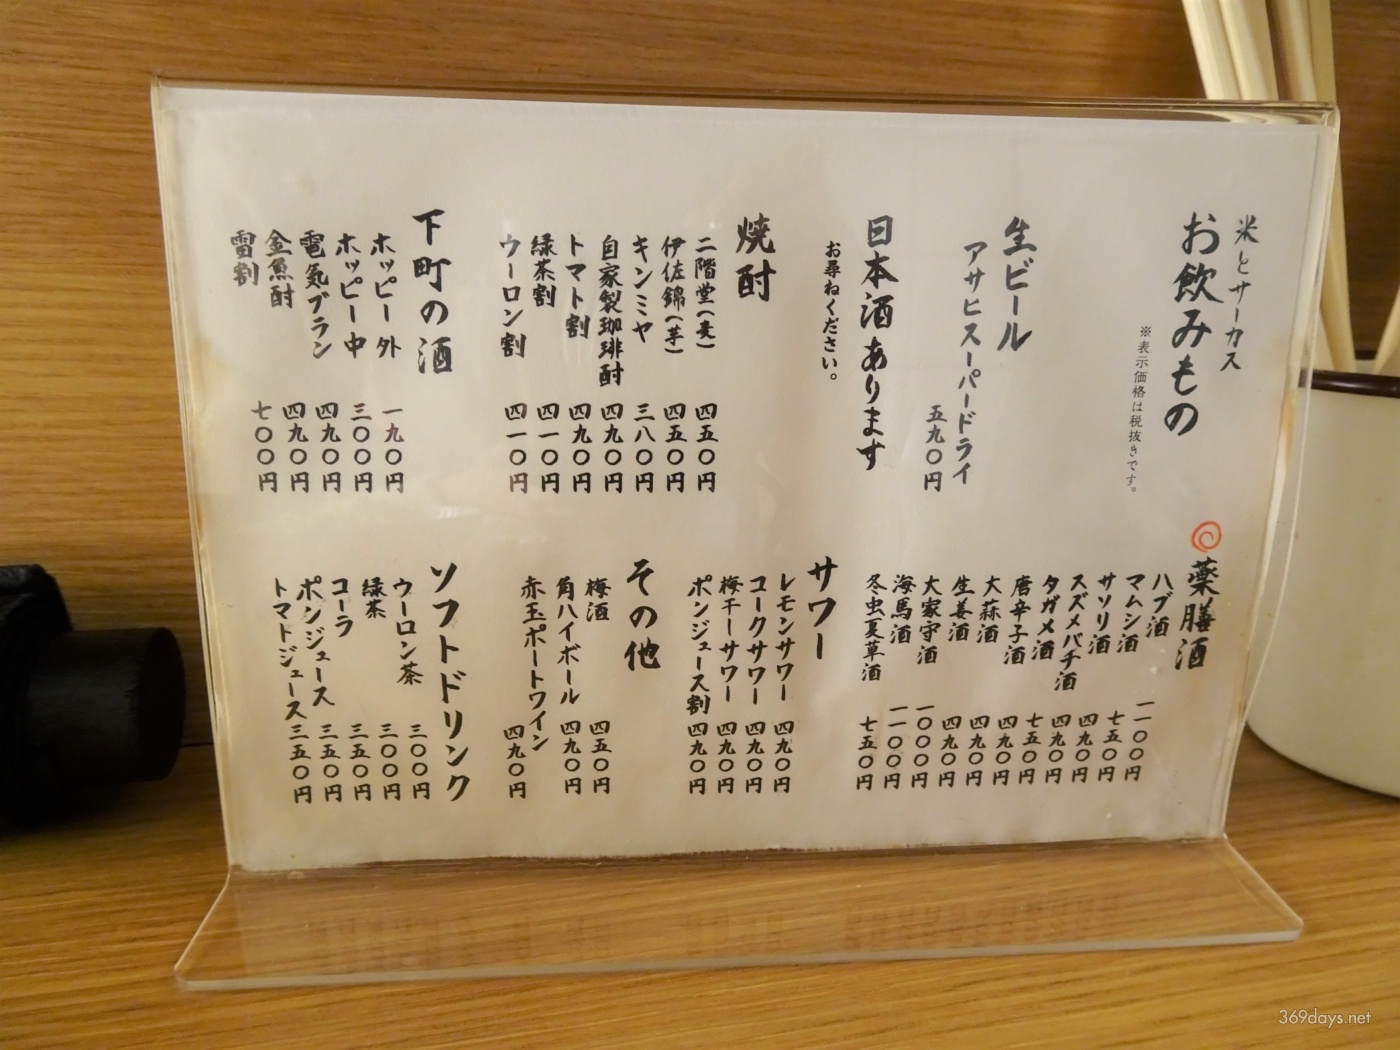 米とサーカス
お飲みもの
※表示価格は税抜きです。
生ビール
アサヒスーパードライ
五九〇円
日本酒あります
お尋ねください。
焼酎
二階堂(麦) 四五〇円
伊佐錦(芋) 四五〇円
キンミヤ 三八〇円
自家製珈琲酎 四九〇円
トマト割 四九〇円
緑茶割 四一〇円
ウーロン割 四一〇円
下町の酒
ホッピー外 一九〇円
ホッピー中 三〇〇円
電気ブラン 四九〇円
金魚酎 四九〇円
雷割 七〇〇円
薬膳酒
ハブ酒 一一〇〇円
マムシ酒 七五〇円
サソリ酒 四九〇円
スズメバチ酒 四九〇円
タガメ酒 七五〇円
唐辛子酒 四九〇円
大蒜酒 四九〇円
生姜酒 四九〇円
大家守酒 一〇〇〇円
海馬酒 一一〇〇円
冬虫夏草酒 七五〇円
サワー
レモンサワー 四九〇円
コークサワー 四九〇円
梅干サワー 四九〇円
ポンジュース割 四九〇円
その他
梅酒 四五〇円
角ハイボール 四九〇円
赤玉ポートワイン 四九〇円
ソフトドリンク
ウーロン茶 三〇〇円
緑茶 三〇〇円
コーラ 三五〇円
ポンジュース 三五〇円
トマトジュース 三五〇円
369days.net